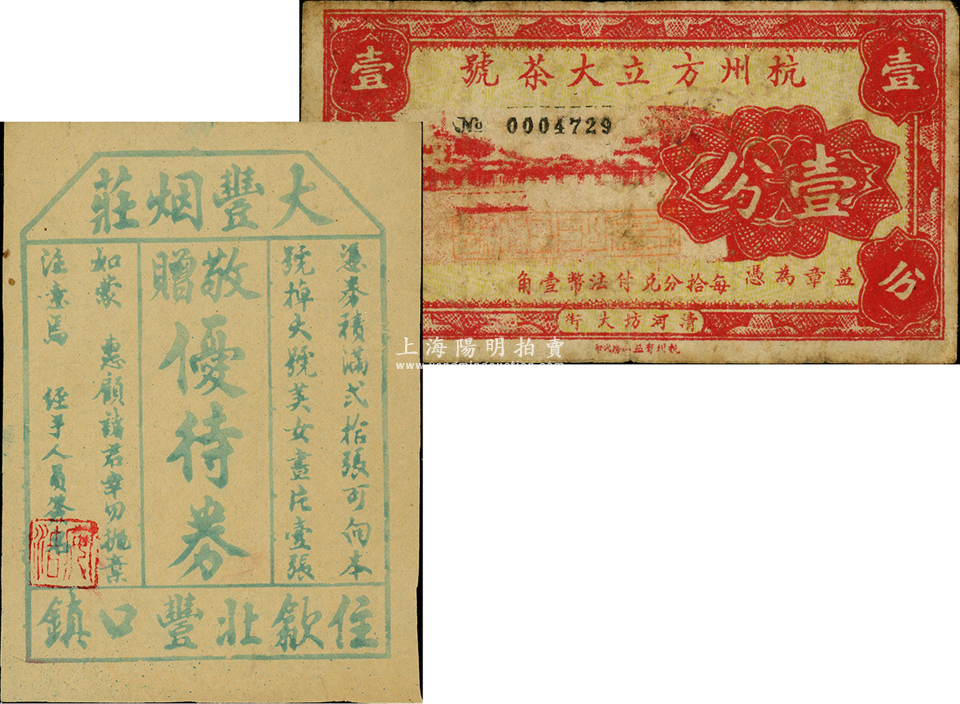 壹
壹
杭州方立大茶號
№ 0004729
壹分
分
每拾分兑付法幣壹角
蓋章為憑
清河坊大街
上海陽明拍賣
大豐烟莊
憑券積滿弍拾張可向本
號掉大號美女畫片壹張
敬贈
優待券
如蒙 惠顧諸君幸勿拋棄
注意焉 經手人員
住歙北豐口鎮